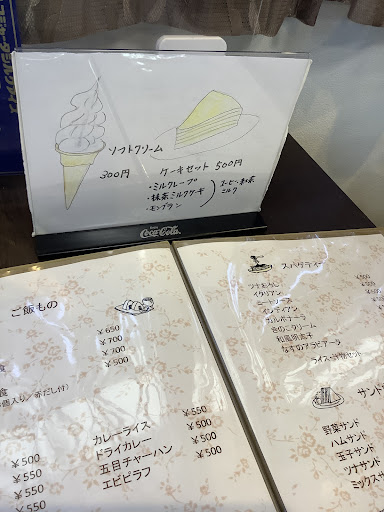 ソフトクリーム
300円
ケーキセット 500円
・ミルクレープ
・抹茶ミルクケーキ
・モンブラン
コーヒー・紅茶
ミルク
Coca-Cola
ご飯もの
¥650
¥700
¥700
¥500
食
食
個入り/赤だし付)
カレーライス ¥550
¥500 ドライカレー ¥500
¥550 五目チャーハン ¥500
¥550 エビピラフ ¥500
スパゲティー
ツナおろし
イタリアン
ミートソース
インディアン
カルボナーラ
きのこクリーム
和風明太子
なすのアラビアータ
ライス・
サンド
野菜サンド
ハムサンド
玉子サンド
ツナサンド
ミックスサ